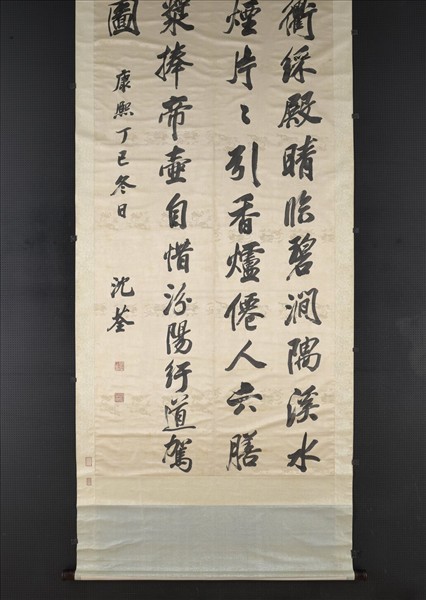 衢綵殿晴臨碧澗隅溪水
煙片々引香爐僊人六膳
漿捧帝壺自惜汾陽紆道駕
圖
康熙丁巳冬日
沈荃